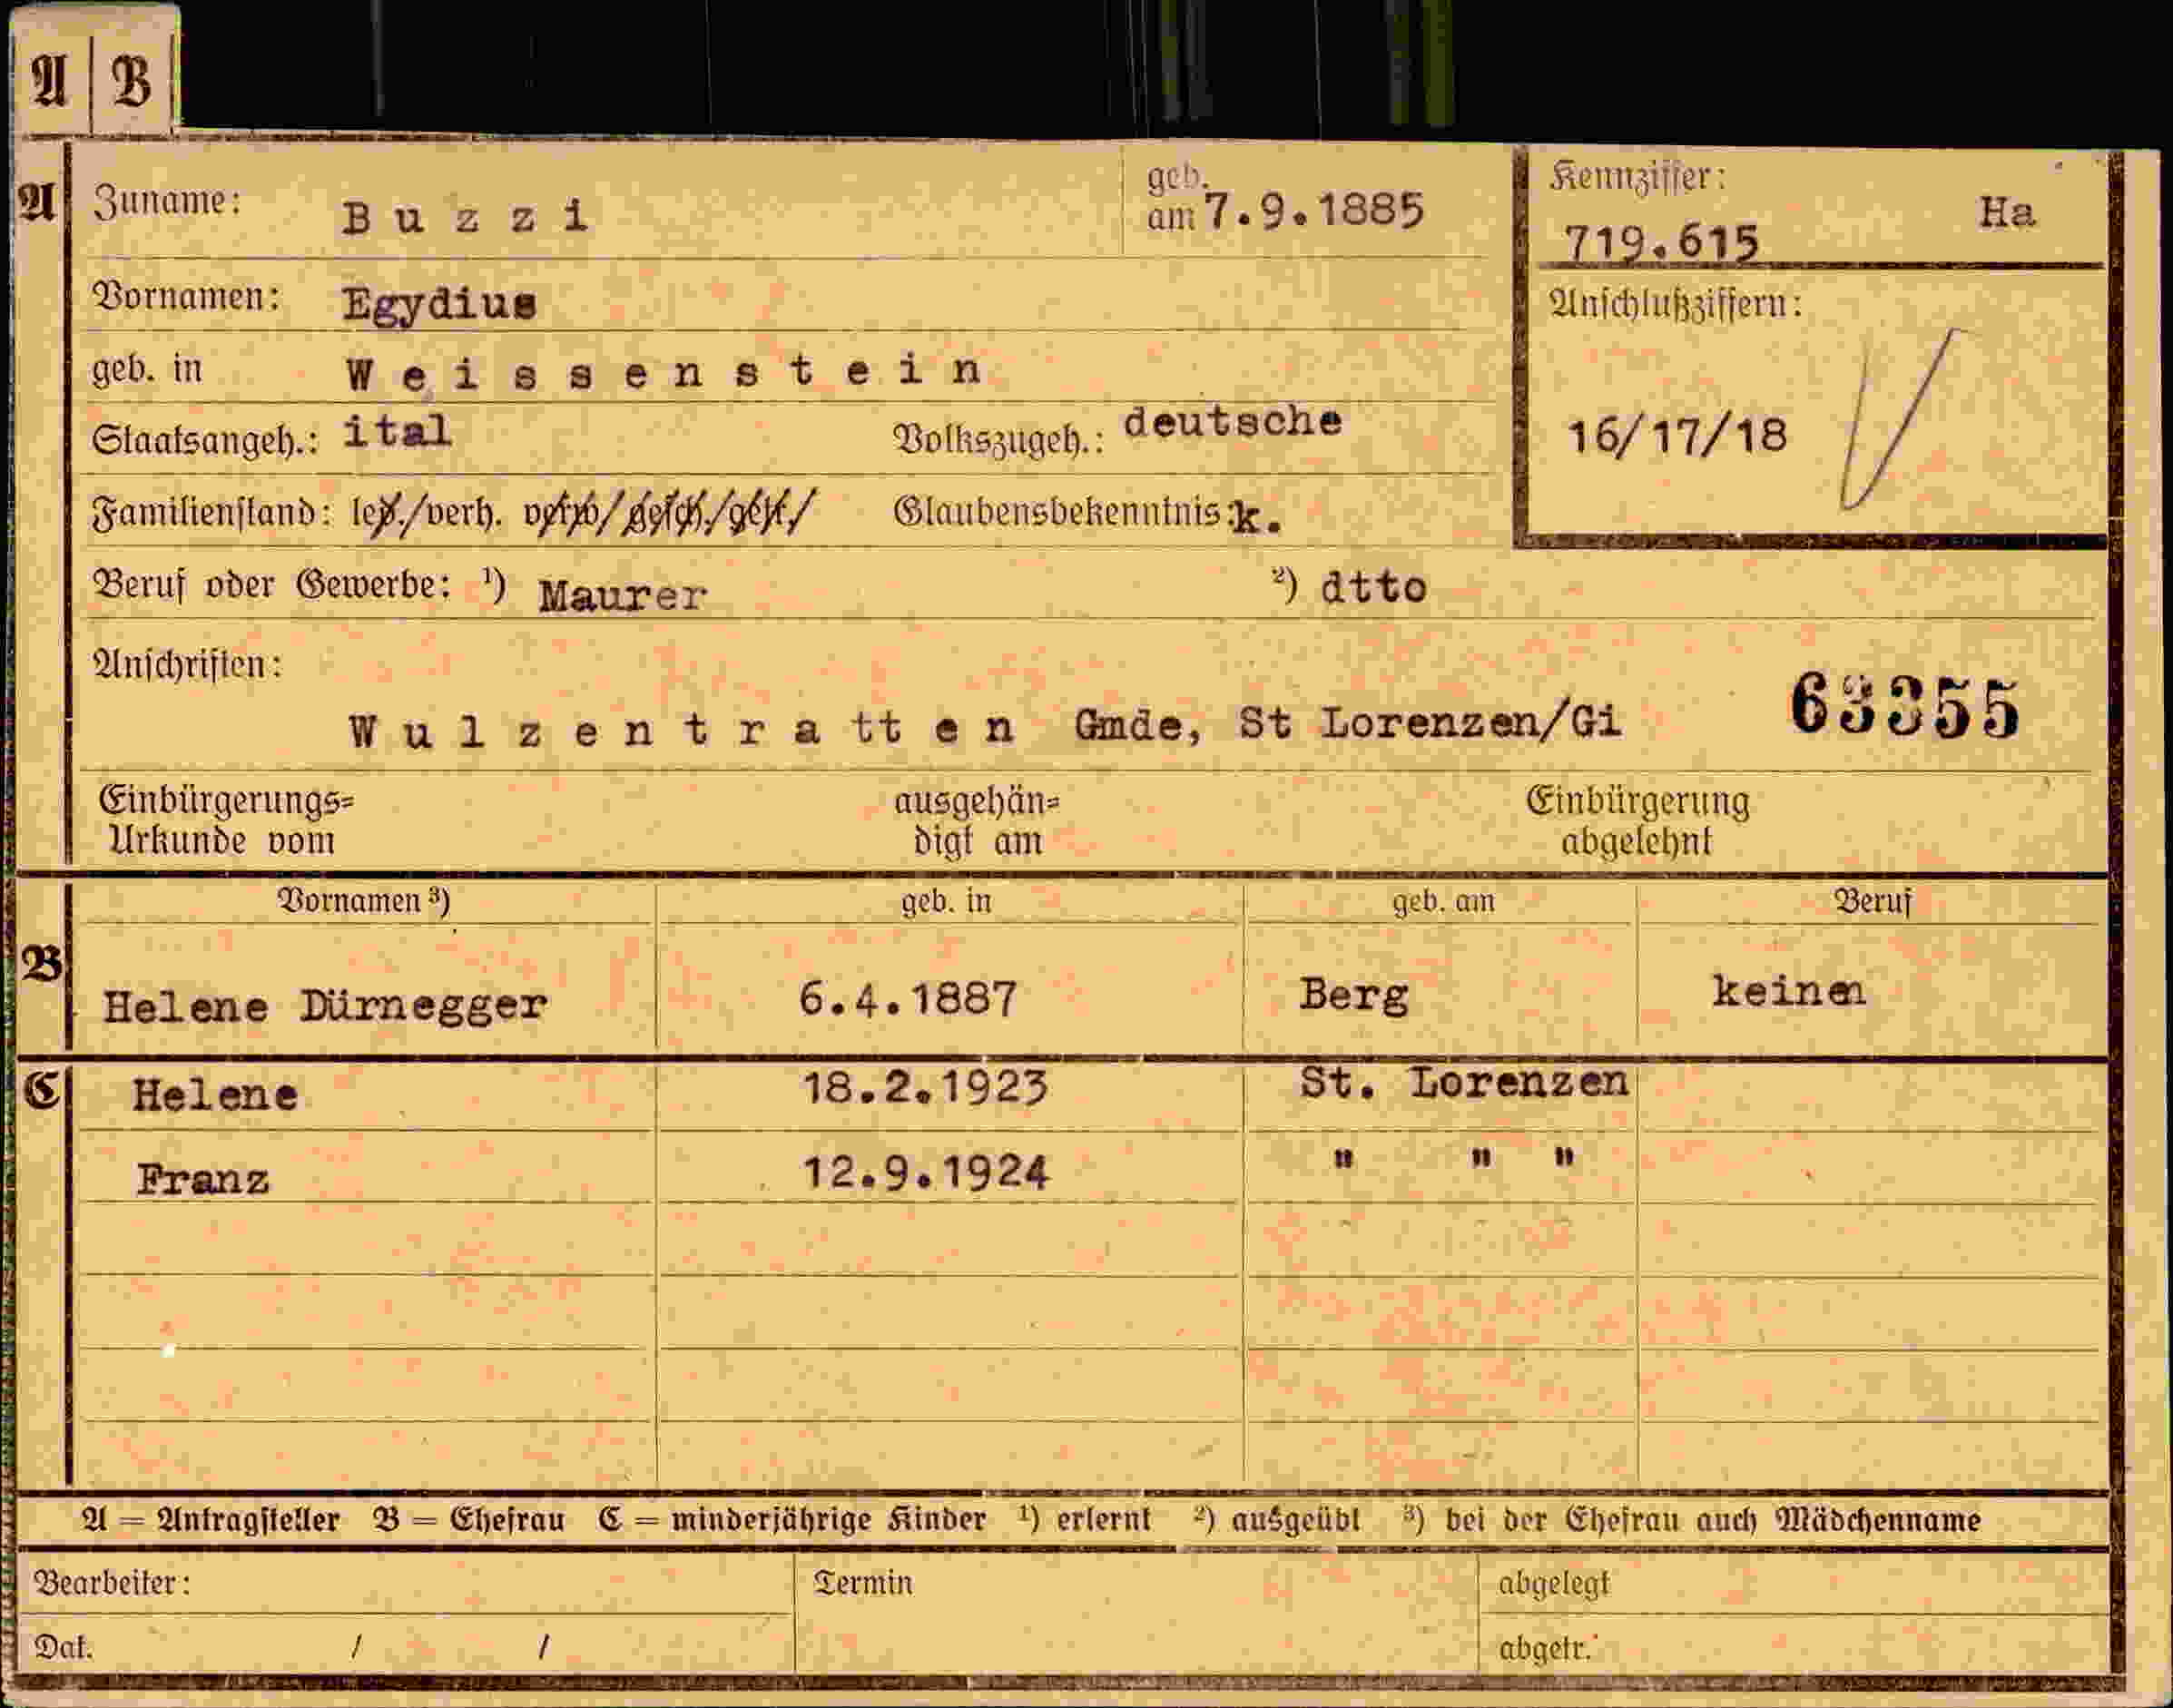 A B
A Zuname: Buzzi geb. am 7.9.1885 Kennziffer: 719.615 Ha
Vornamen: Egydius Anschlußziffern:
geb. in Weissenstein
Staatsangeh.: ital Volkszugeh.: deutsche 16/17/18
Familienstand: led./verh. verw/gesch./get./ Glaubensbekenntnis: k.
Beruf oder Gewerbe: ¹) Maurer ²) dtto
Anschriften:
Wulzentratten Gmde, St Lorenzen/Gi 63355
Einbürgerungs= ausgehän= Einbürgerung
Urkunde vom digt am abgelehnt
Vornamen ³) geb. in geb. am Beruf
B Helene Dürnegger 6.4.1887 Berg keinen
C Helene 18.2.1923 St. Lorenzen
Franz 12.9.1924 " " "
A = Antragsteller B = Ehefrau C = minderjährige Kinder ¹) erlernt ²) ausgeübt ³) bei der Ehefrau auch Mädchenname
Bearbeiter: Termin abgelegt
Dat. / / abgetr.